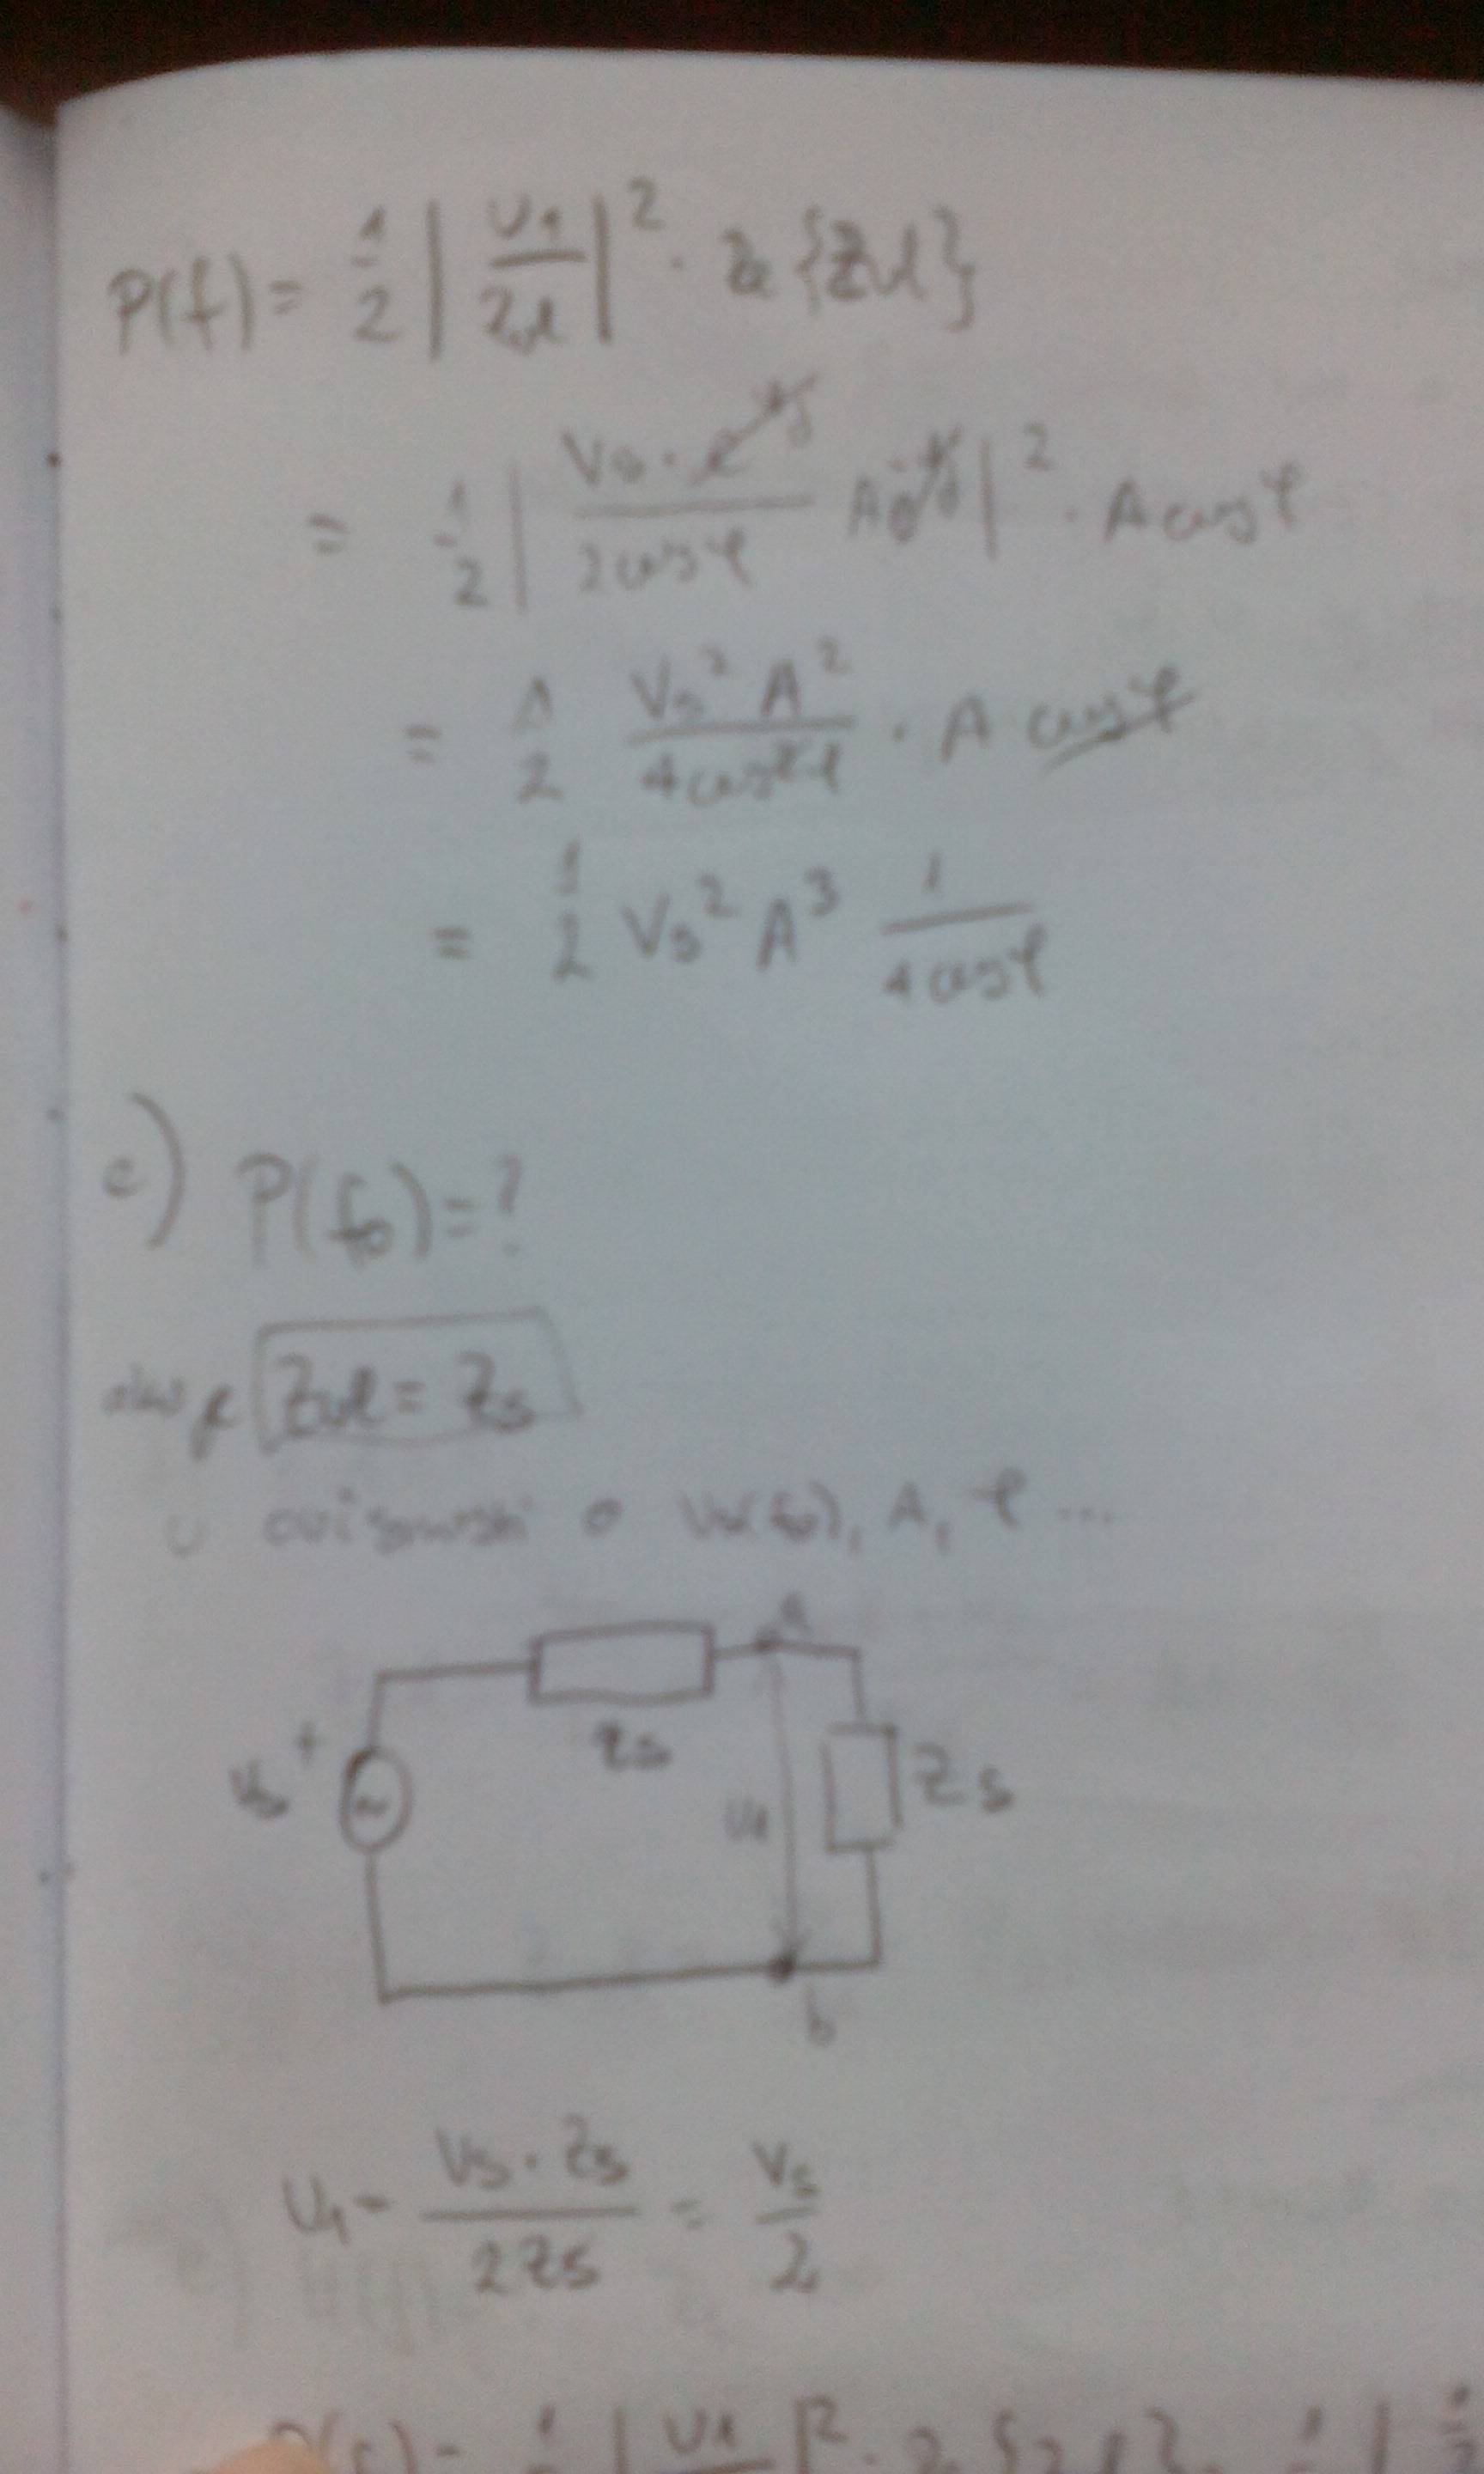 P(f) = 1/2 | U1 / Zul |² · Re {Zul}
= 1/2 | Vs · e^jφ / 2cosφ A e^-jφ |² · A cosφ
= 1/2 Vs² A² / 4cos²φ · A cosφ
= 1/2 Vs² A³ 1 / 4cosφ
c) P(f₀) = ?
Zul = Zs
U ovisnosti o Vs(f₀), A, φ ...
a
Zs
+
Vs
U1
Zs
b
U1 = Vs · Zs / 2Zs = Vs / 2
U1